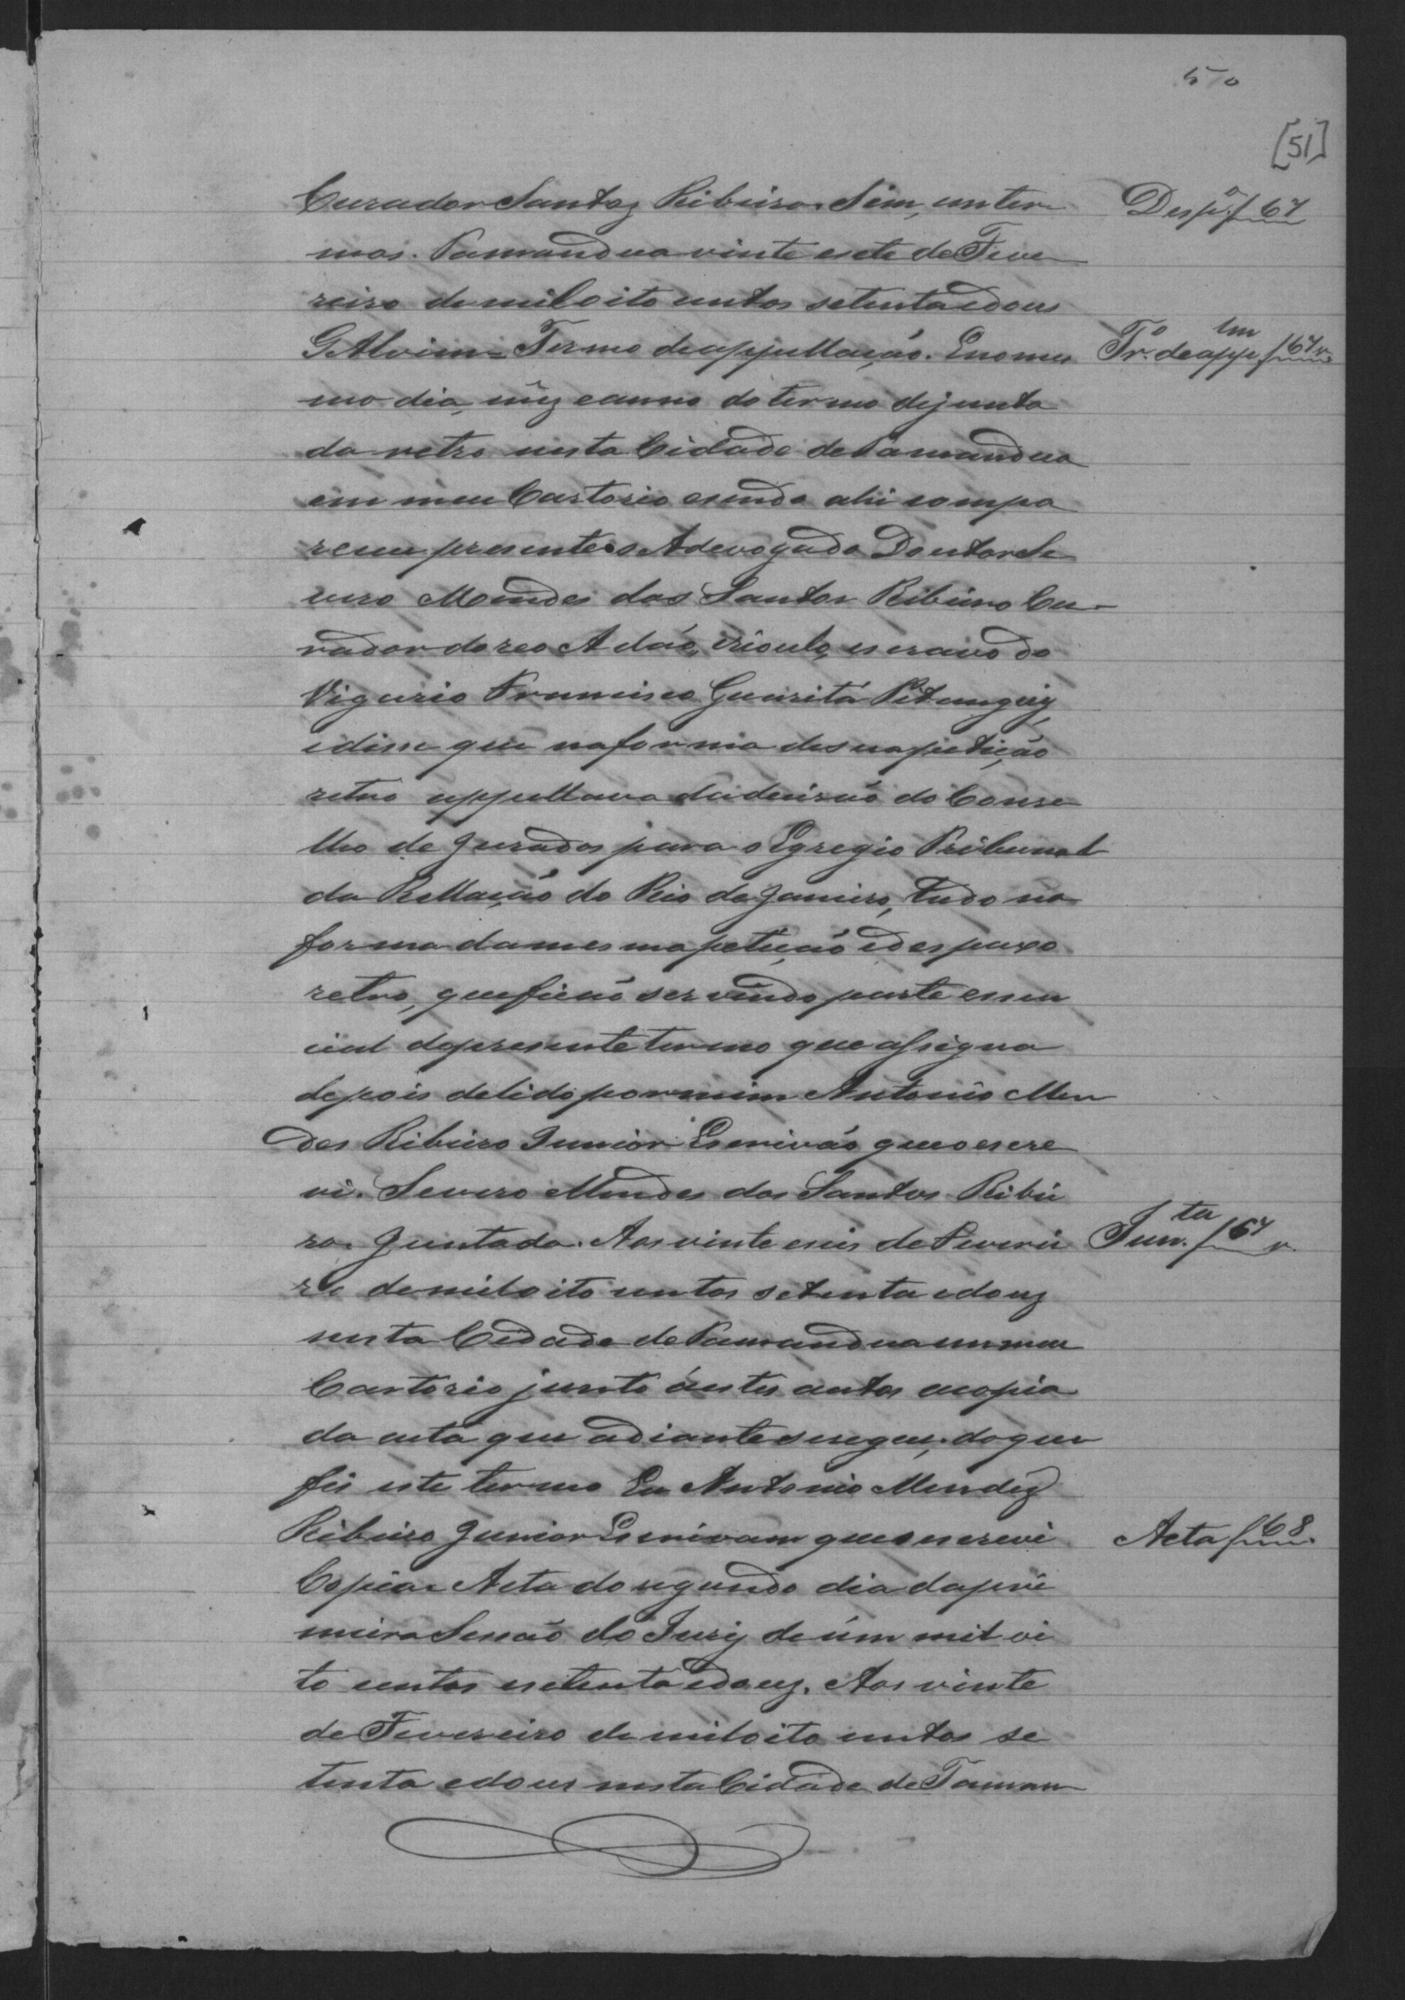 50
[51]
Curador Santos Ribeiro. Sim, em ter
Desp.º f 67
mos. Tamandua vinte e sete de Feve
reiro de mil oito centos setenta e dous
G. Alvim = Termo de appellação. E no mes
Tr.º de app.lm f 67 v.
mo dia, mez e anno do termo de junta
da retro nesta Cidade de Tamandua
em meu Cartorio e sendo ahi compa
receu presente o Adevogado Doutor Se
vero Mendes dos Santos Ribeiro Cu-
rador do reo Adão, crioulo, escravo do
Vigario Francisco Guaritá Pitanguy,
e disse que na forma de sua petição
retro appellava da decisão do Conse
lho de Jurados para o Egregio Tribunal
da Rellação do Rio de Janeiro, tudo na
forma da mesma petição e despaxo
retro, que ficão servindo parte essen
cial do presente termo que assigna
depois de lido por mim Antonio Men
des Ribeiro Junior Escrivão que o escre
vi. Severo Mendes dos Santos Ribei
ro. Juntada. Aos vinte e seis de Feverei
Jun.ta f 67 v.
ro de mil oito centos setenta e douz
nesta Cidade de Tamandua em meu
Cartorio junto áestes autos a copia
da acta que adiante se segue, do que
fis este termo Eu Antonio Mendez
Ribeiro Junior Escrivam que o escrevi
Acta f 68.
Copia = Acta do segundo dia da pri
meira Sessão do Jury de úm mil oi
to centos e setenta e douz. Aos vinte
de Fevereiro de mil oito centos se
tenta e dous nesta Cidade de Taman